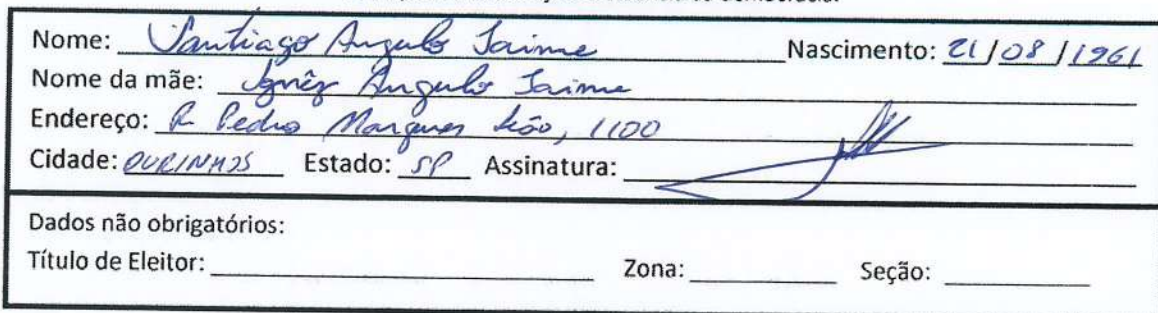 Nome: Santiago Angulo Jaime Nascimento: 21/08/1961
Nome da mãe: Ignêz Angulo Jaime
Endereço: R Pedro Marques Leão, 1100
Cidade: OURINHOS Estado: SP Assinatura:
Dados não obrigatórios:
Título de Eleitor: Zona: Seção: